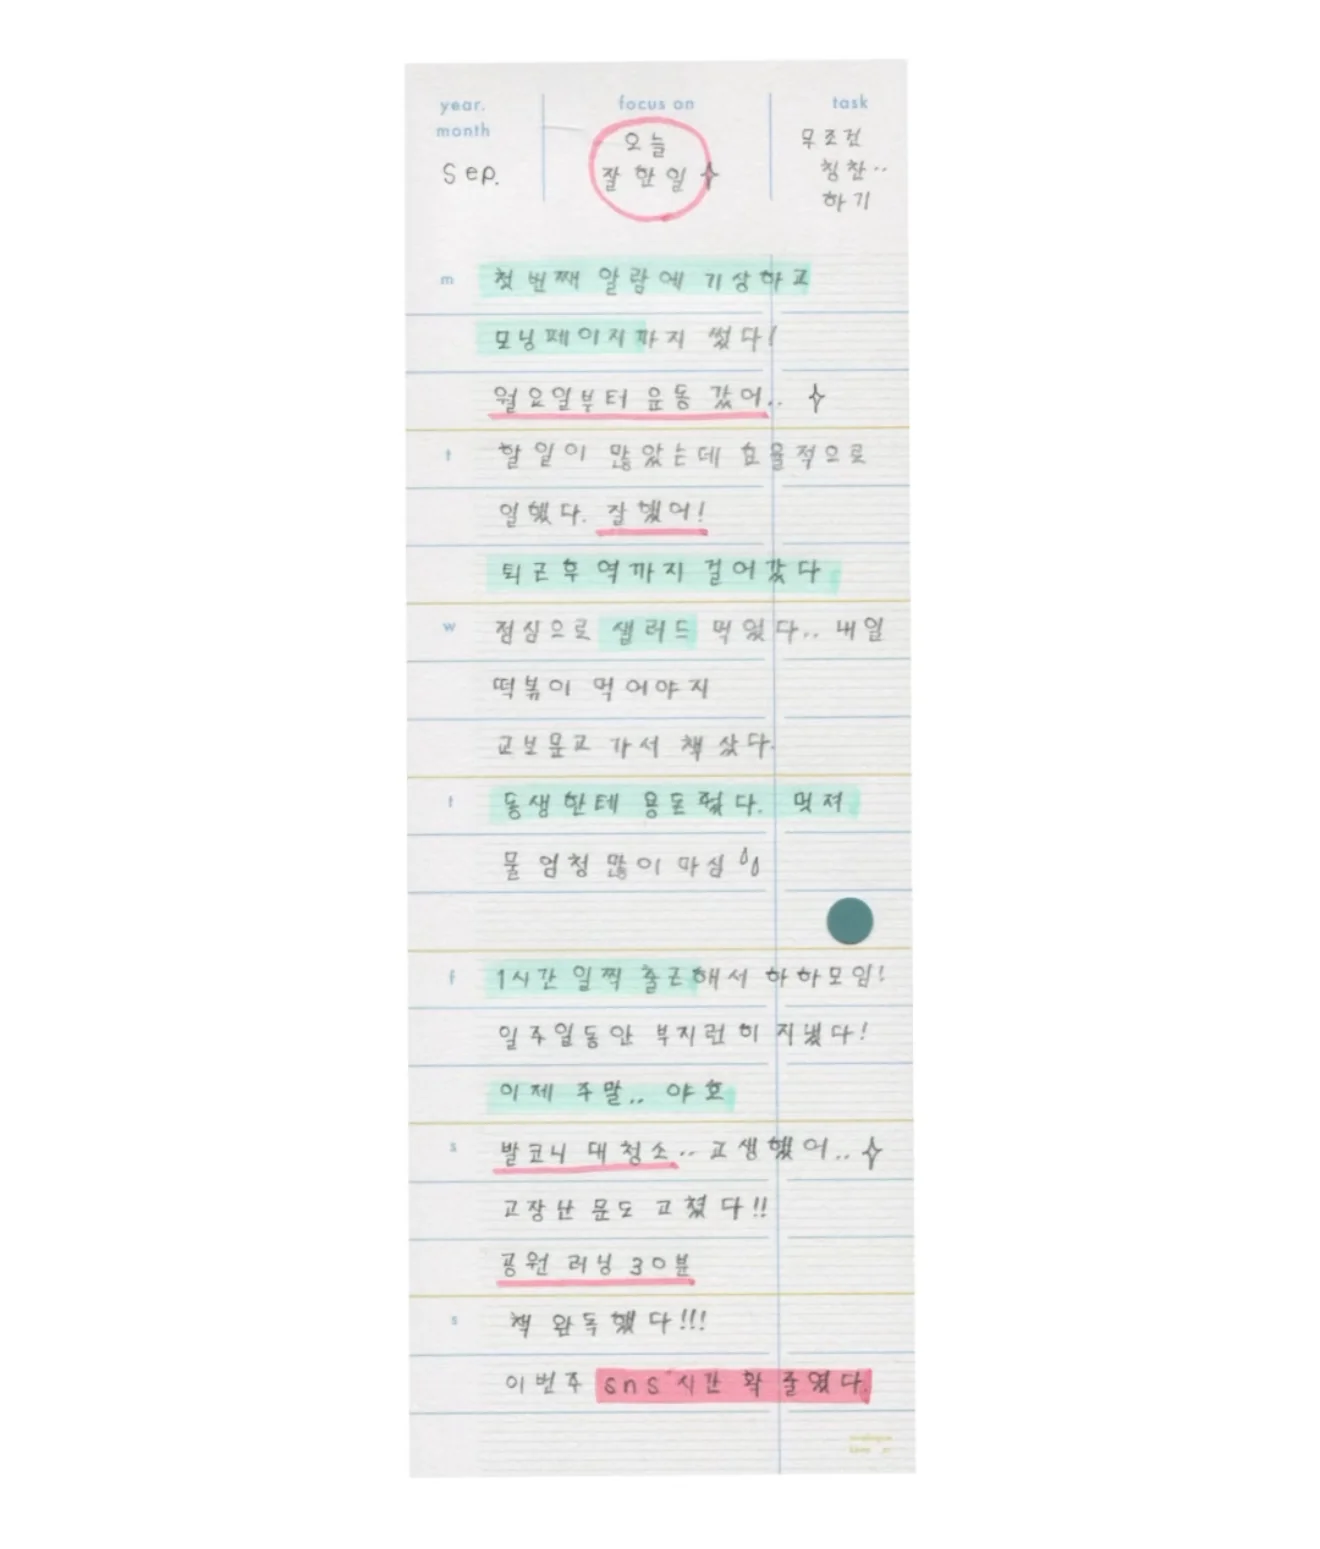 year.
month
Sep.
focus on
오늘
잘한일
task
무조건
칭찬..
하기
m
첫번째 알람에 기상하고
모닝페이지까지 썼다!
월요일부터 운동 갔어..
t
할일이 많았는데 효율적으로
일했다. 잘했어!
퇴근후 역까지 걸어갔다
w
점심으로 샐러드 먹었다.. 내일
떡볶이 먹어야지
교보문고 가서 책 샀다.
t
동생한테 용돈줬다. 멋져
물 엄청 많이 마심
f
1시간 일찍 출근해서 하하모임!
일주일동안 부지런히 지냈다!
이제 주말.. 야호
s
발코니 대청소.. 고생했어..
고장난 문도 고쳤다!!
공원 러닝 30분
s
책 완독했다!!!
이번주 sns 시간 확 줄였다.